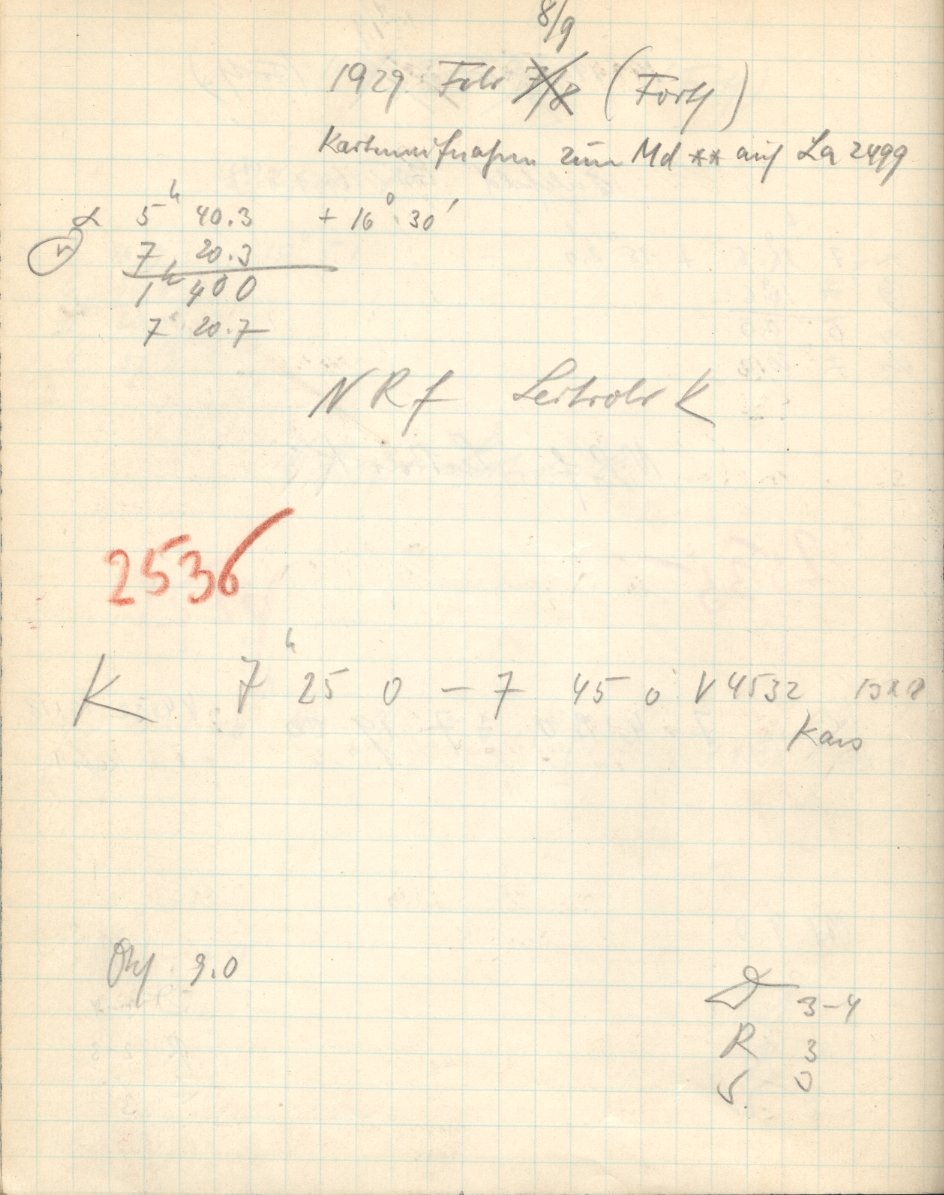 8/9
1929 Febr 7/8 (Forts)
Kartenaufnahmen zum Md ** auf La 2499
α 5h 40.3 + 16° 30'
7 20.3
1h 40 0
7 20.7
N R f Leitrohr K
2536
K 7h 25 0 – 7 45 0 V 4532
Kais
Obj 9.0
D 3–4
R 3
S. 0